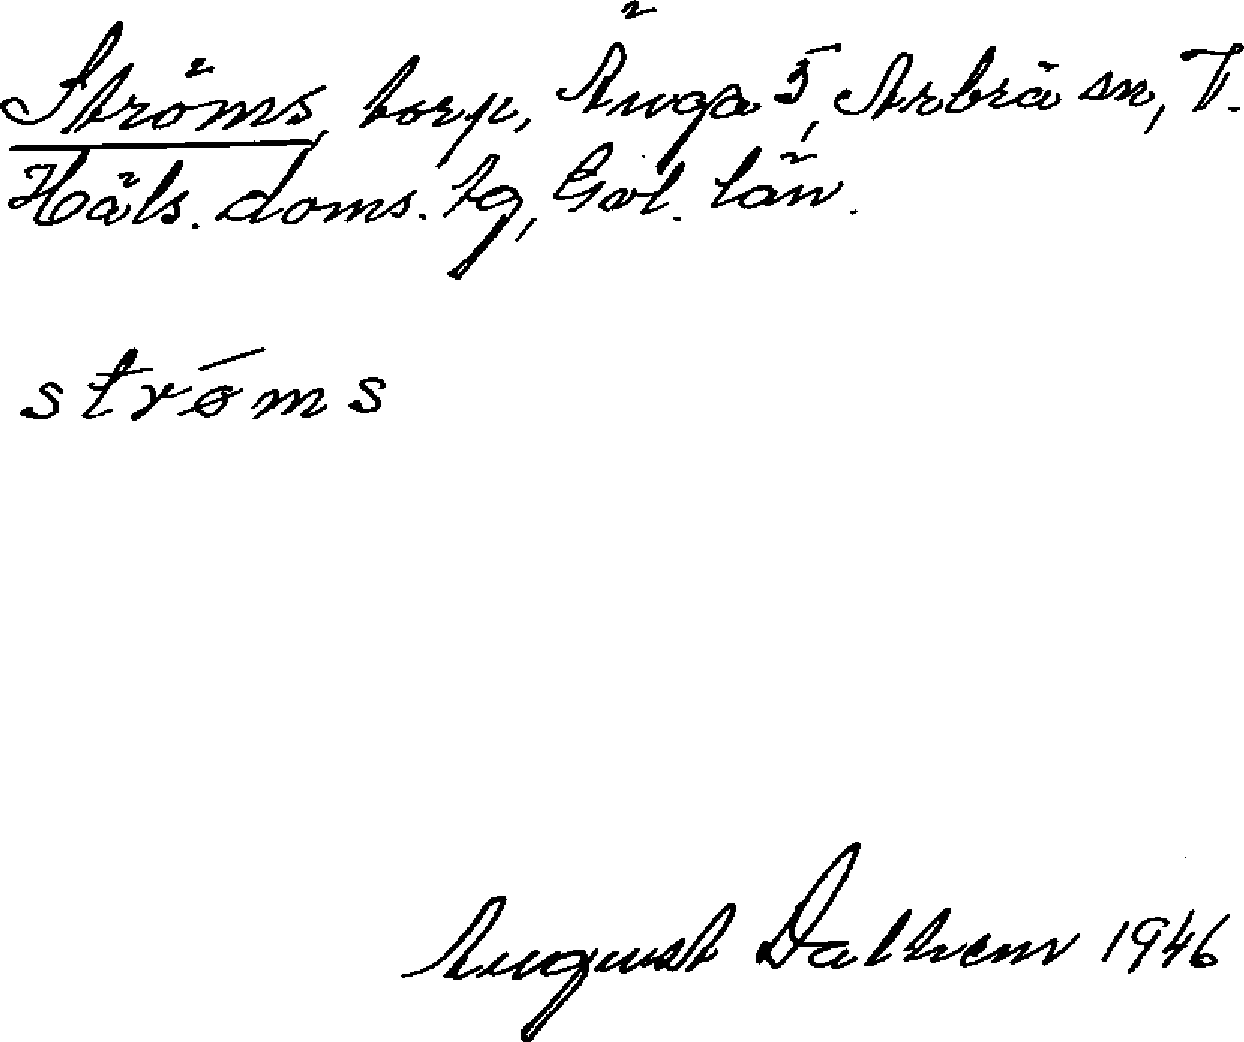 Ströms, torp, Änga 5, Arbrå sn, V.
Häls. doms. tg, Gvl. län.
strøms
August Dalhem 1946